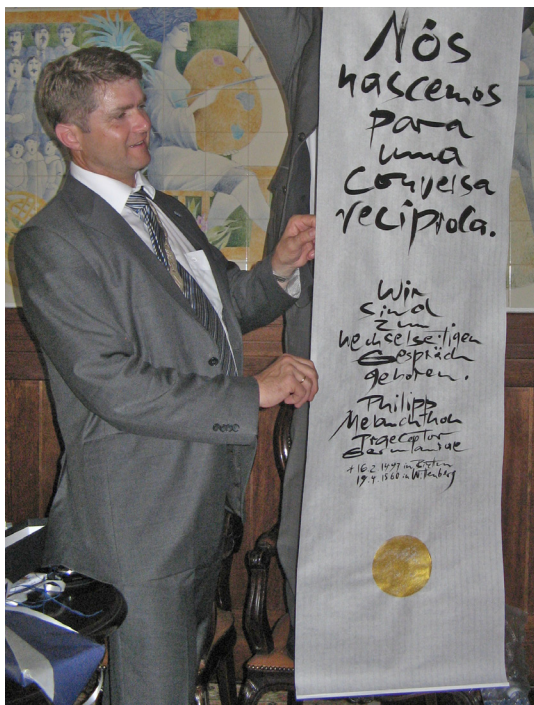 Nós
nascemos
para
uma
conversa
recíproca.
Wir
sind
zum
wechselseitigen
Gespräch
geboren.
Philipp
Melanchthon
Praeceptor
Germaniae
* 16.2.1497 in Bretten
19.4.1560 in Wittenberg